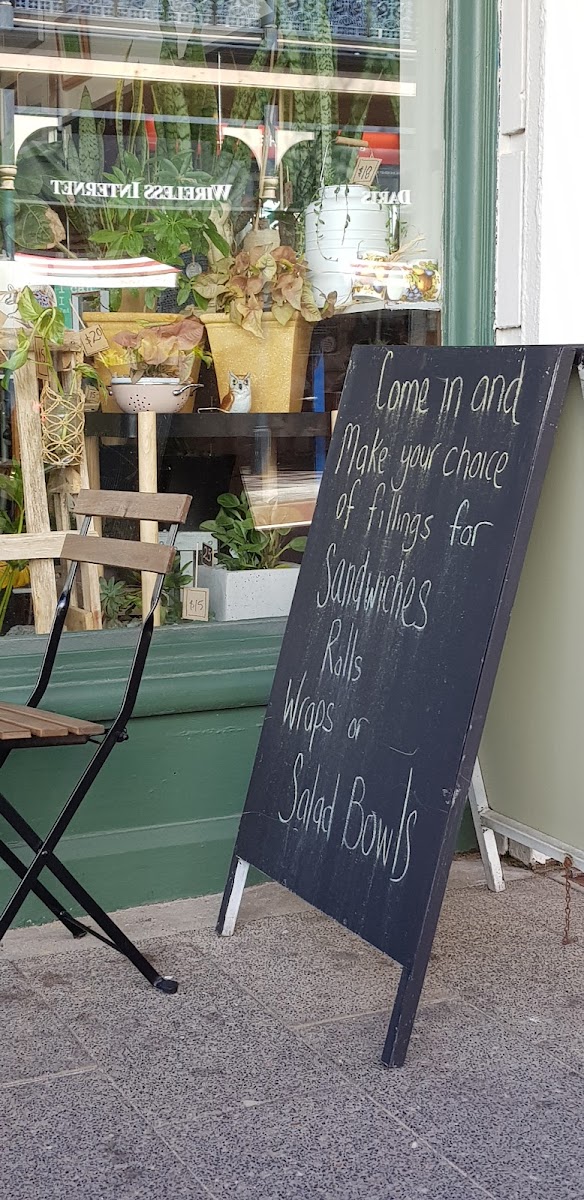 WIRELESS INTERNET
DARTS
$18
$29
$15
Come in and
Make your choice
of fillings for
Sandwiches
Rolls
Wraps or
Salad Bowls